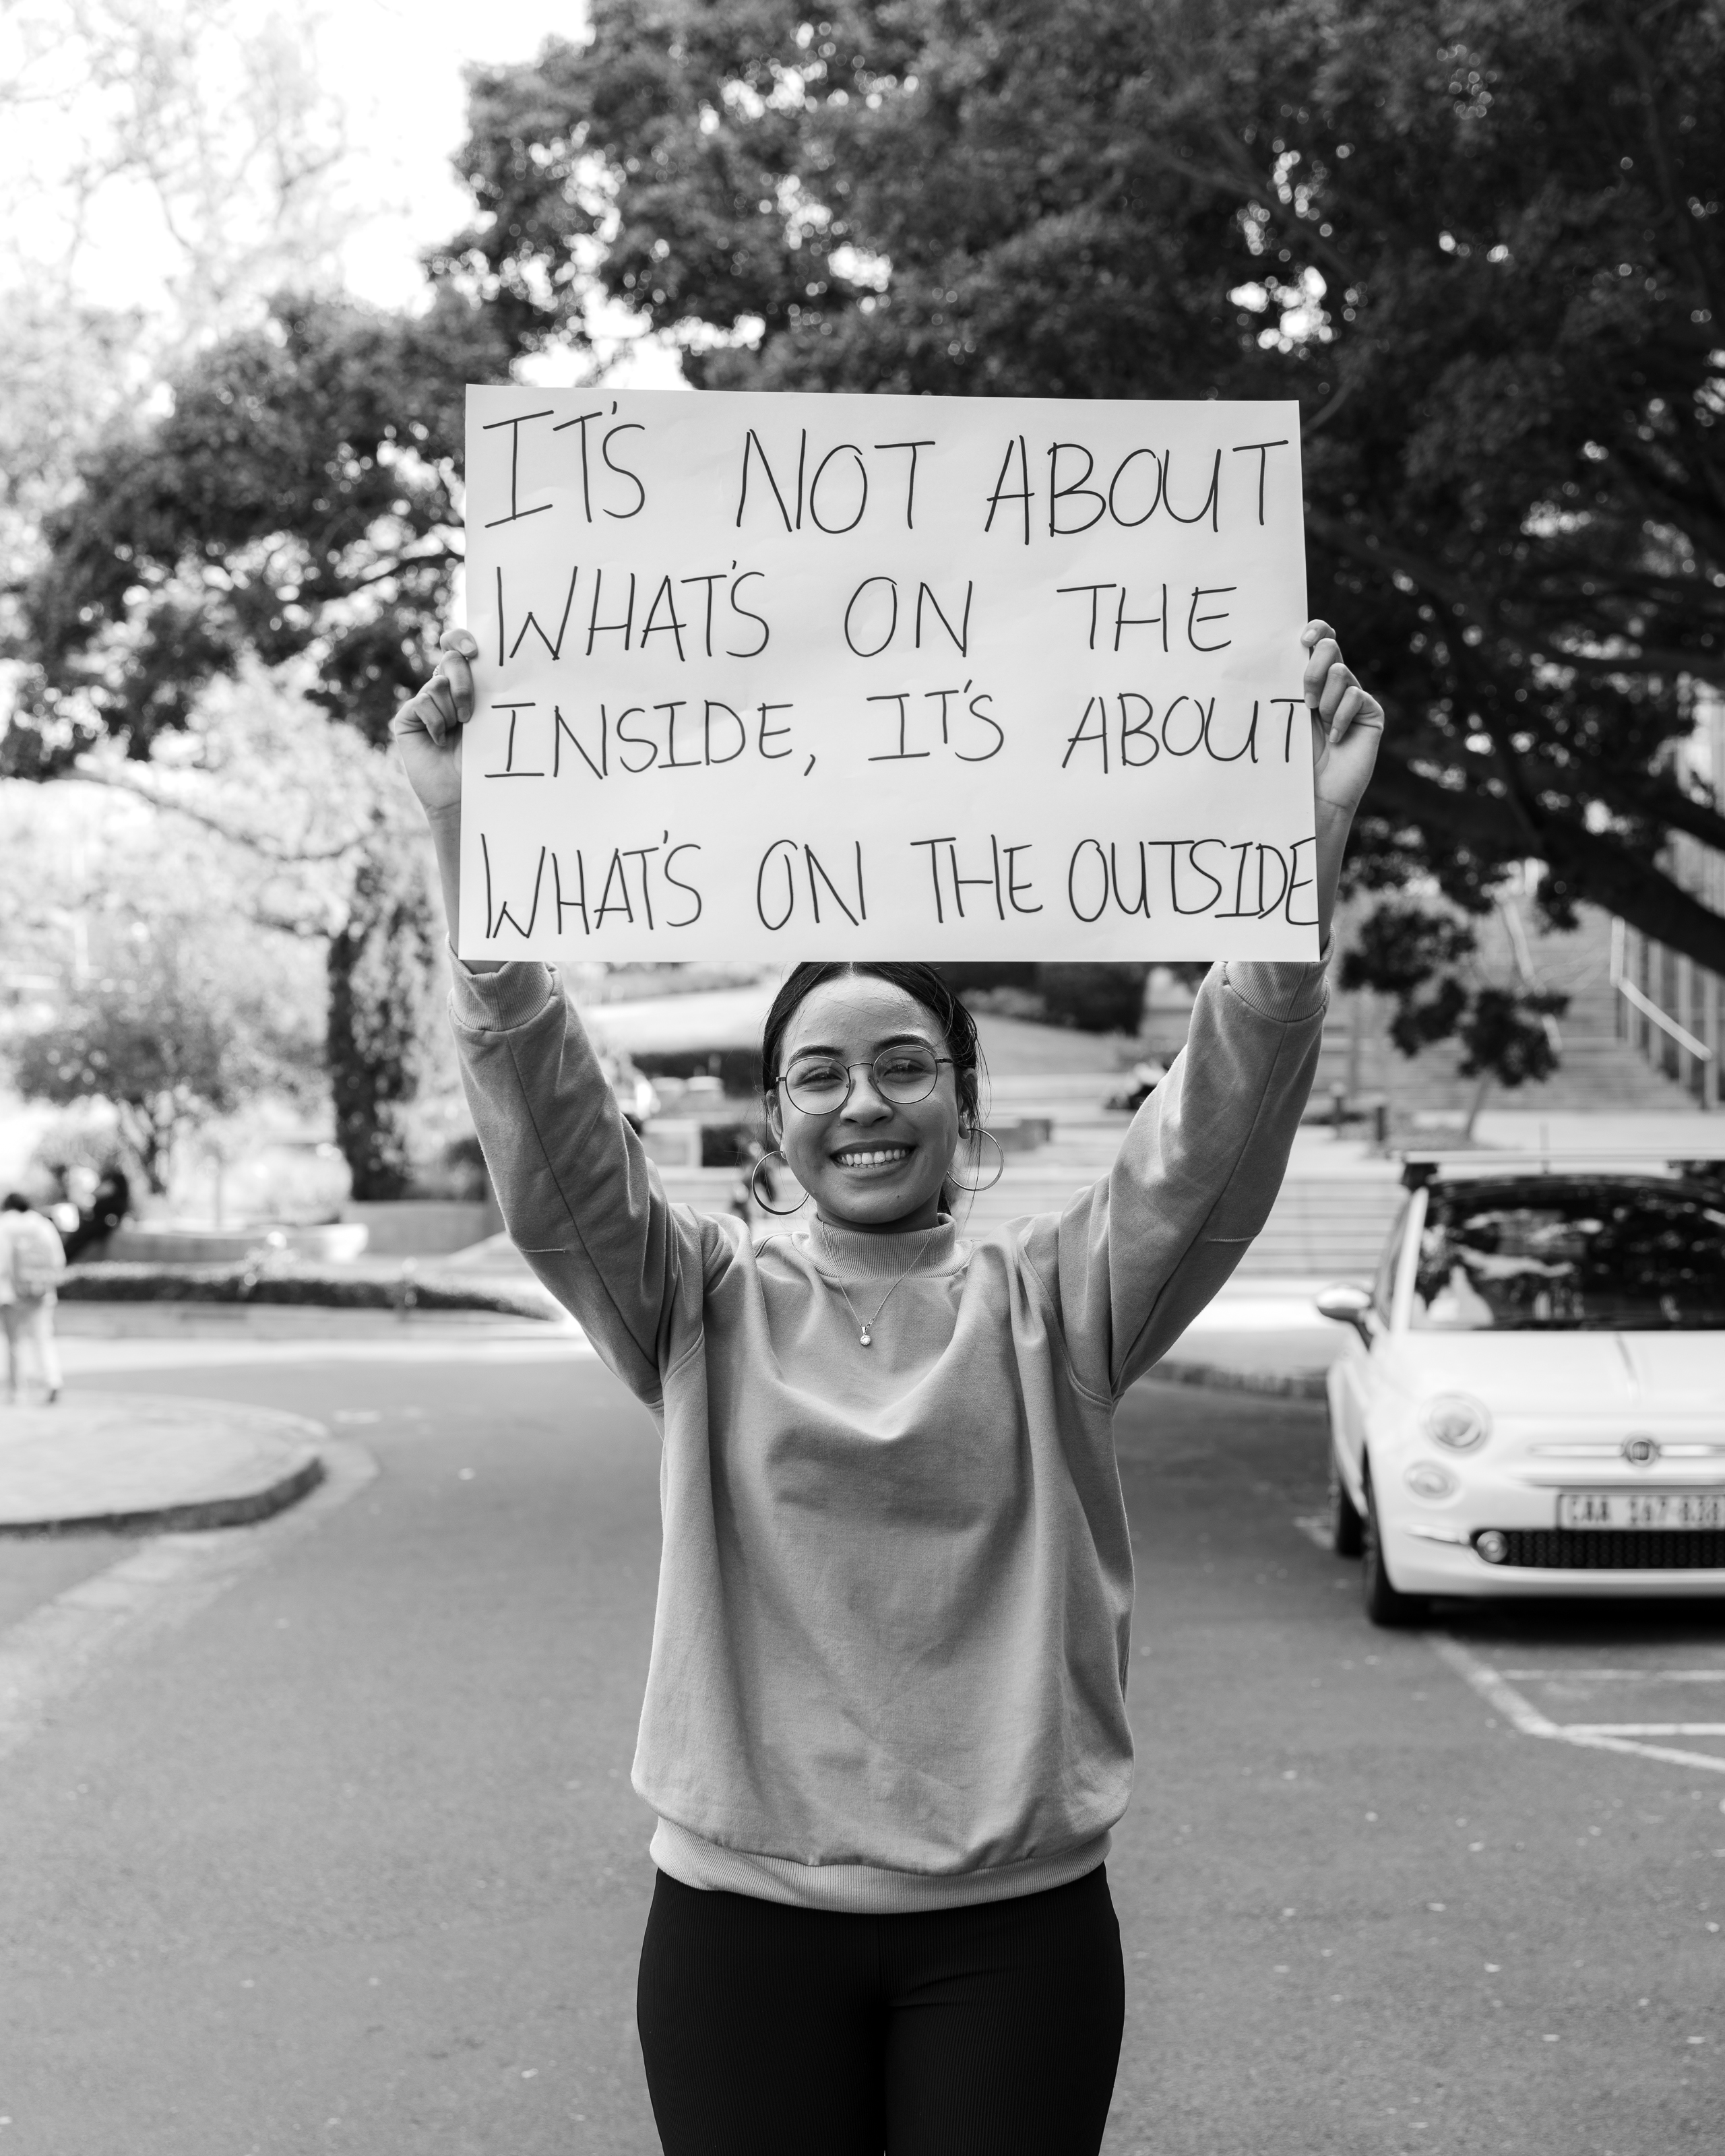 IT'S NOT ABOUT
WHAT'S ON THE
INSIDE, IT'S ABOUT
WHAT'S ON THE OUTSIDE